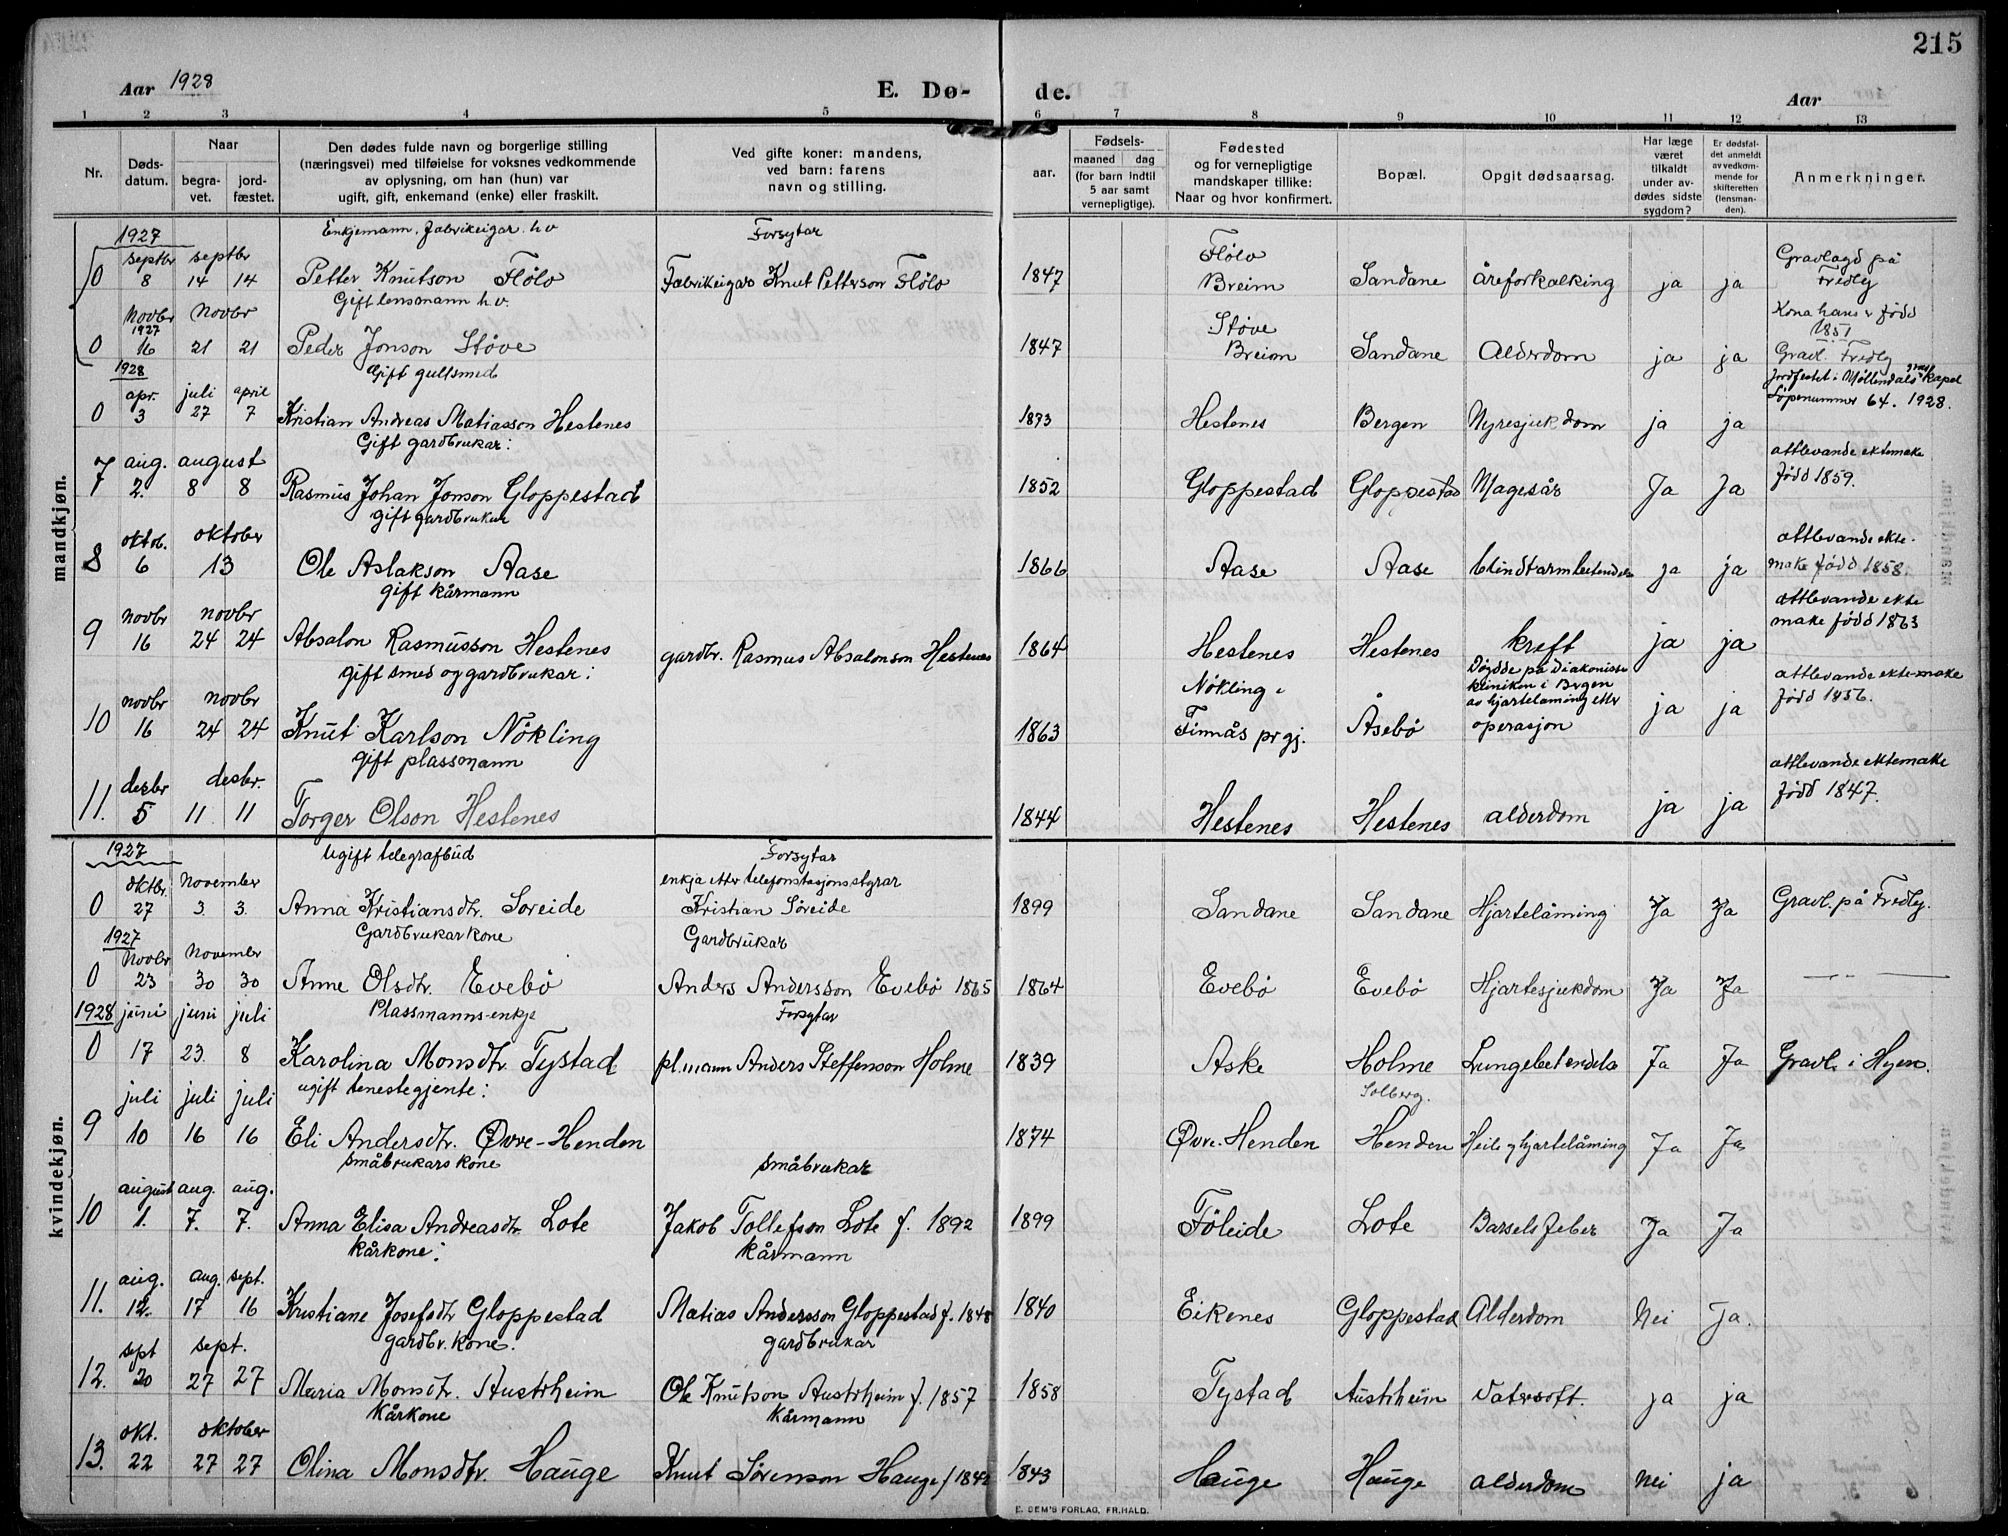 215
Aar 1928 E. Dø- de. Aar
1 2 3 4 5 6 7 8 9 10 11 12 13
Nr. Døds-datum. Naar begra-vet. jord-fæstet. Den dødes fulde navn og borgerlige stilling (næringsvei) med tilføielse for voksnes vedkommende av oplysning, om han (hun) var ugift, gift, enkemand (enke) eller fraskilt. Ved gifte koner: mandens, ved barn: farens navn og stilling. Fødsels- aar. maaned dag (for barn indtil 5 aar samt vernepligtige). Fødested og for vernepligtige mandskaper tillike: Naar og hvor konfirmert. Bopæl. Opgit dødsaarsag. Har læge været tilkaldt under av-dødes sidste sygdom? Er dødsfal-det anmeldt av vedkom-mende for skifteretten (lensman-den). Anmerkninger.
mandkjøn.
1927 Enkjemann, fabrikeigar h.v. Forsytar
0 septbr 8 septbr 14 14 Petter Knutson Flölo Fabrikeigar Knut Petterson Flölo 1847 Flölo Breim Sandane Åreforkalking ja ja Gravlagd på Fredly
Gift lensmann h.v.
0 Novbr 1927 16 Novbr 21 21 Peder Jonson Støve 1847 Støve Breim Sandane Alderdom ja ja Kona hans er född 1851 Gravl. Fredly
1928 Gift gullsmed
0 apr. 3 juli 27 april 7 Kristian Andreas Matiasson Hestenes 1873 Hestenes Bergen Nyresjukdom ja ja Jordfestet i Möllendals grav kapel Löpenummer 64. 1928.
Gift gardbrukar:
7 aug. 2. august 8 8 Rasmus Johan Jonson Gloppestad 1852 Gloppestad Gloppestad Magesår Ja Ja attlevande ektemake född 1859.
gift gardbrukar
8 oktob. 6 oktober 13 Ole Aslakson Aase 1866 Aase Aase blindtarmbetendelse ja ja attlevande ekte-make född 1858.
gift kårmann
9 novbr 16 novbr 24 24 Absalon Rasmusson Hestenes gardbr. Rasmus Absalonson Hestenes 1864 Hestenes Hestenes kreft ja ja attlevande ekte make född 1863
gift smed og gardbrukar:
10 novbr 16 novbr 24 24 Knut Karlson Nökling 1863 Nökling i Finnås prgj. Åsebö Döydde på Diakonisse kliniken i Bergen av hjartelåming etter operasjon ja ja attlevande ektemake född 1856.
gift plassmann
11. desbr 5 desbr. 11 11 Torger Olson Hestenes 1844 Hestenes Hestenes alderdom ja ja attlevande ektemake född 1847.
kvindekjøn.
1927 Ugift telegrafbud Forsytar
0 Oktbr. 27 November 3. 3. Anna Kristiansdtr. Soreide enkja etter telefonstasjonsstyrar Kristian Söreide 1899 Sandane Sandane Hjartelåming Ja Ja Gravl. på Fredly.
1927 Gardbrukarkone Gardbrukar
0 Novbr 23 November 30 30 Anne Olsdtr. Evebö Anders Andersson Evebö 1865 1864 Evebö Evebö Hjartesjukdom Ja Ja
1928 Plassmanns-enkje Forsytar
0 juni 17 juni 23 juli 8 Karolina Monsdtr. Tystad pl.mann Anders Steffenson Holme 1839 Aske Holme Lungebetendelse Ja Ja Gravl. i Hyen.
ugift tenestegjente:
9 juli 10 juli 16 juli 16 Eli Andersdtr. Øvre-Henden 1874 Øvre-Henden Solberg. Henden Heile og hjartelåming Ja Ja
småbrukars kone småbrukar
10 august 1. aug. 7. aug. 7. Anna Elisa Andreasdtr. Lote Jakob Tollefson Lote f. 1892 1899 Föleide Lote Barselsfeber Ja Ja
kårkone: kårmann
11. aug. 12. aug. 17 sept. 16 Kristiane Josefsdtr Gloppestad Matias Andersson Gloppestad f. 1848 1840 Eikenes Gloppestad Alderdom Nei Ja.
gardbr. kone. gardbrukar
12. sept 20 sept. 27 27 Maria Monsdtr. Austrheim Ole Knutson Austrheim f. 1857 1858 Tystad Austrheim Vatersott. ja ja
Kårkone Kårmann
13. okt. 22 oktober 27 27 Olina Monsdtr. Hauge Knut Sörenson Hauge f 1842 1843 Hauge Hauge alderdom nei ja
E. SEM'S FORLAG, FR.HALD.